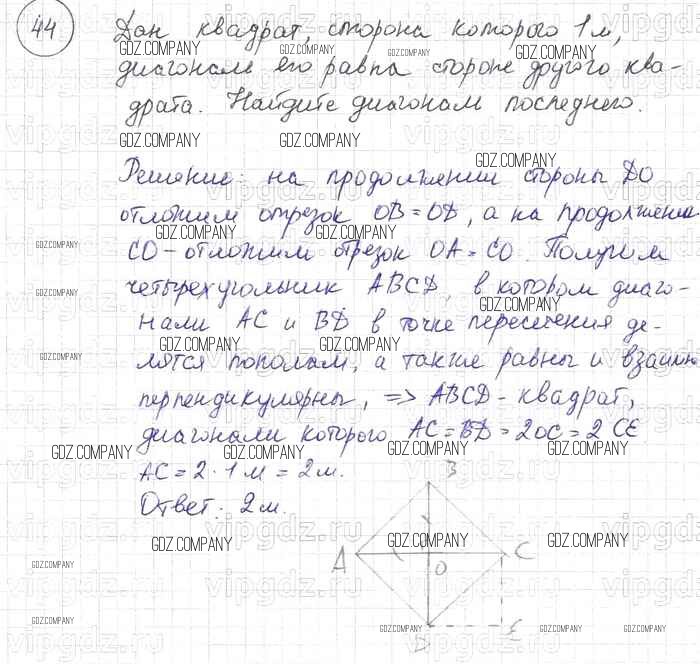 44
Дан квадрат, сторона которого 1 м,
диагональ его равна стороне другого ква-
драта. Найдите диагональ последнего.
Решение: на продолжении стороны DO
отложим отрезок OB = OD, а на продолжении
CO - отложим отрезок OA = CO. Получим
четырехугольник ABCD, в котором диаго-
нали AC и BD в точке пересечения де-
лятся пополам, а также равны и взаимно
перпендикулярны, => ABCD - квадрат,
диагонали которого AC = BD = 2OC = 2 CE
AC = 2 · 1 м = 2 м.
Ответ: 2 м.
B
A
C
O
D
E
GDZ.COMPANY
vipgdz.ru